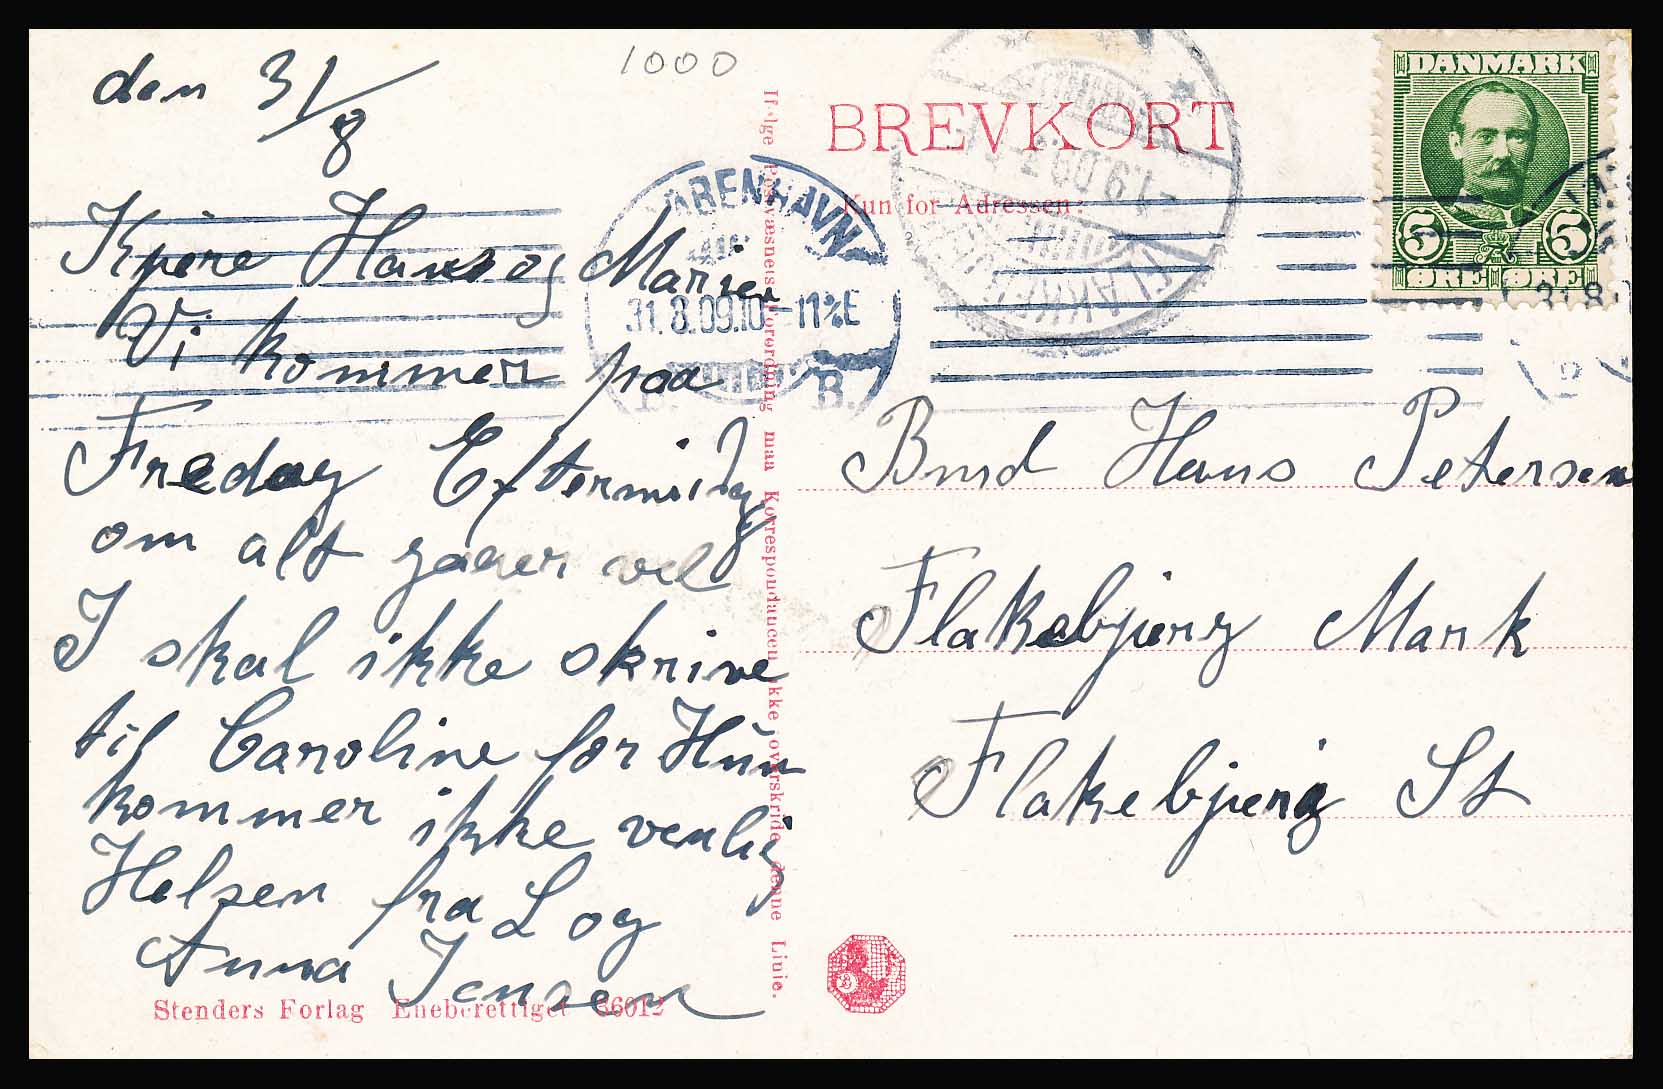 den 31/8
1000
Kjære Hans og Marien
Vi kommer paa
Fredag Eftermidg
om alt gaaer vel
I skal ikke skrive
til Caroline for Hun
kommer ikke venlig
Helsen fra L og
Anna Jensen
Stenders Forlag Eneberettiget 36012
Ifølge Postvæsnets Forordning maa Korrespondancen ikke overskride denne Linie.
BREVKORT
Kun for Adressen:
KØBENHAVN
31.8.09.10-11½E
B.
DANMARK
5 5
ØRE ØRE
31.8.
Bmd Hans Petersen
Flakebjerg Mark
Flakebjerg St